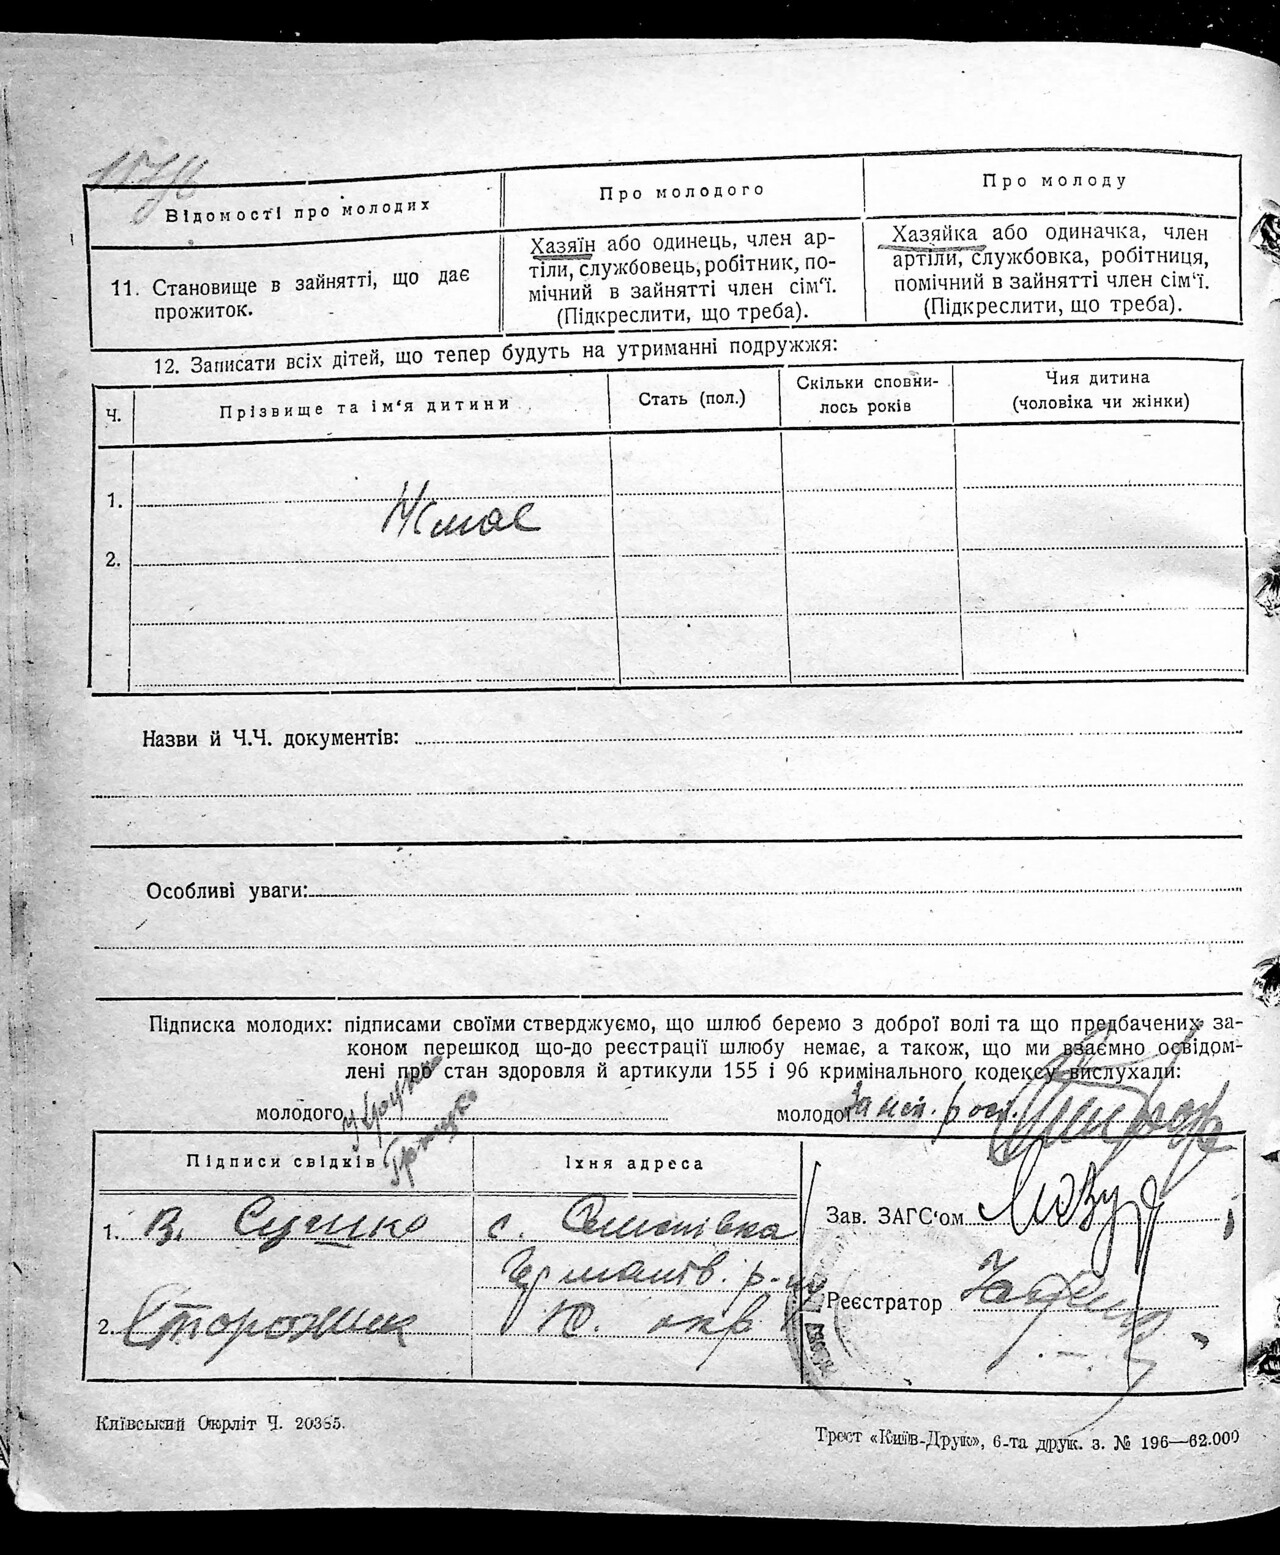 Відомості про молодих
Про молодого
Про молоду
11. Становище в зайнятті, що дає
прожиток.
Хазяїн або одинець, член ар-
тіли, службовець, робітник, по-
мічний в зайнятті член сім'ї.
(Підкреслити, що треба).
Хазяйка або одиначка, член
артіли, службовка, робітниця,
помічний в зайнятті член сім'ї.
(Підкреслити, що треба).
12. Записати всіх дітей, що тепер будуть на утриманні подружжя:
Ч.
Прізвище та ім'я дитини
Стать (пол.)
Скільки сповни-
лось років
Чия дитина
(чоловіка чи жінки)
1.
Немає
2.
Назви й Ч.Ч. документів:
Особливі уваги:
Підписка молодих: підписами своїми стверджуємо, що шлюб беремо з доброї волі та що предбачених за-
коном перешкод що-до реєстрації шлюбу немає, а також, що ми взаємно освідом-
лені про стан здоровля й артикули 155 і 96 кримінального кодексу вислухали:
молодого
молодої
Підписи свідків
Їхня адреса
1. В. Сушко
с.
Зав. ЗАГС'ом
р-ну
Реєстратор
2. Сторожик
К. окр.
Київський Окрліт Ч. 20385.
Трест «Київ-Друк», 6-та друк. з. № 196—62.000